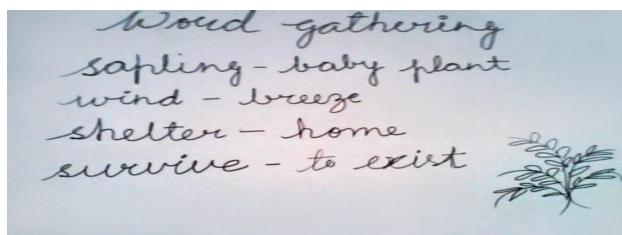 Word gathering
sapling - baby plant
wind - breeze
shelter - home
survive - to exist